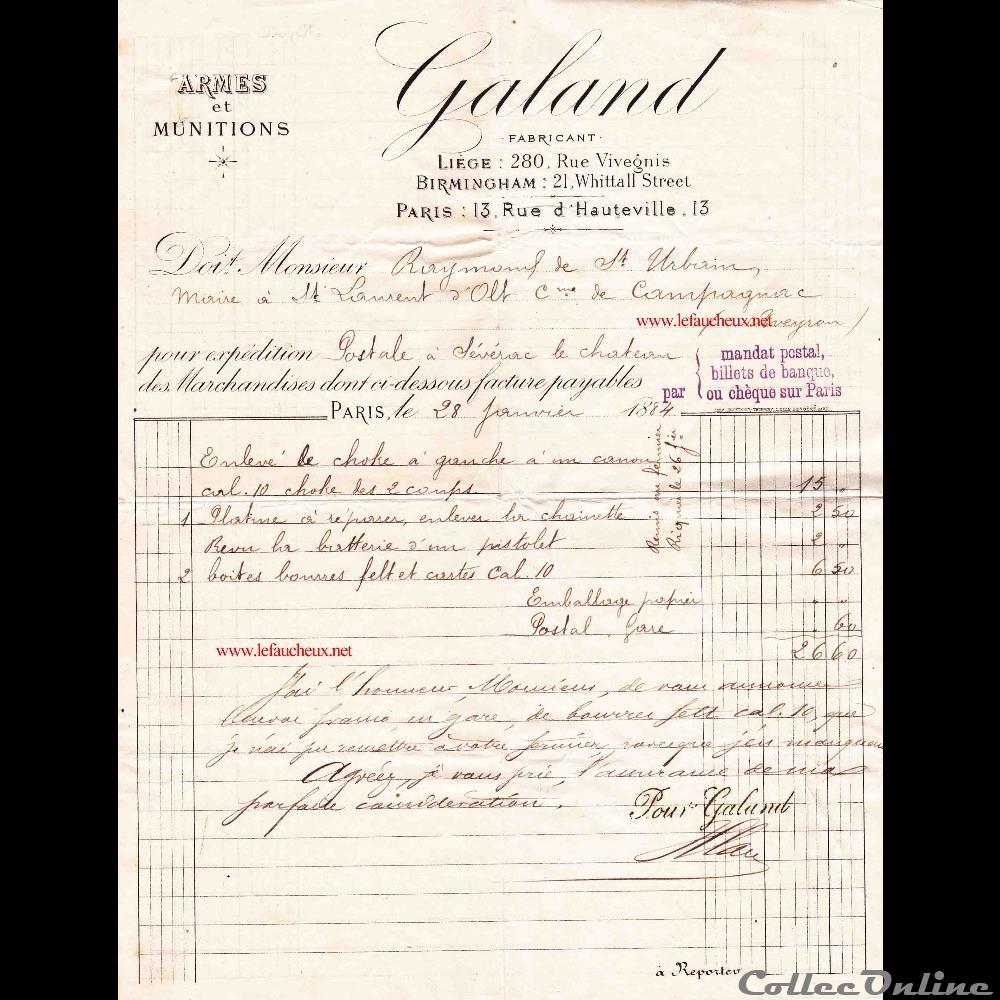 ARMES
et
MUNITIONS
Galand
FABRICANT
LIÉGE : 280, Rue Vivegnis
BIRMINGHAM : 21, Whittall Street
PARIS : 13, Rue d'Hauteville, 13
Doit Monsieur Raymond de St Urbain,
Maire à St Laurent d'Olt Cne de Campagnac
www.lefaucheux.net
(Aveyron)
pour expédition Postale à Sévérac le chateau
des Marchandises dont ci-dessous facture payables
par
mandat postal,
billets de banque,
ou chèque sur Paris
PARIS, le 28 Janvier 1884
Enlevé le choke à gauche à un canon
cal. 10 choke des 2 coups. 15 "
1 Platine à réparer, enlever la chainette 2 50
Revu la batterie d'un pistolet 2 "
2 boites bourres felt et cartes Cal. 10 6 50
Remis au fermier
le 26 Jer
Emballage papier " "
Postal. Gare " 60
26 60
www.lefaucheux.net
J'ai l'honneur, Monsieur, de vous annoncer
l'envoi franco en gare, de bourres felt cal. 10, que
je n'ai pu remettre à votre fermier, parceque j'en manquais
Agréez, je vous prie, l'assurance de ma
parfaite considération.
Pour Galand
à Reporter
CollecOnline